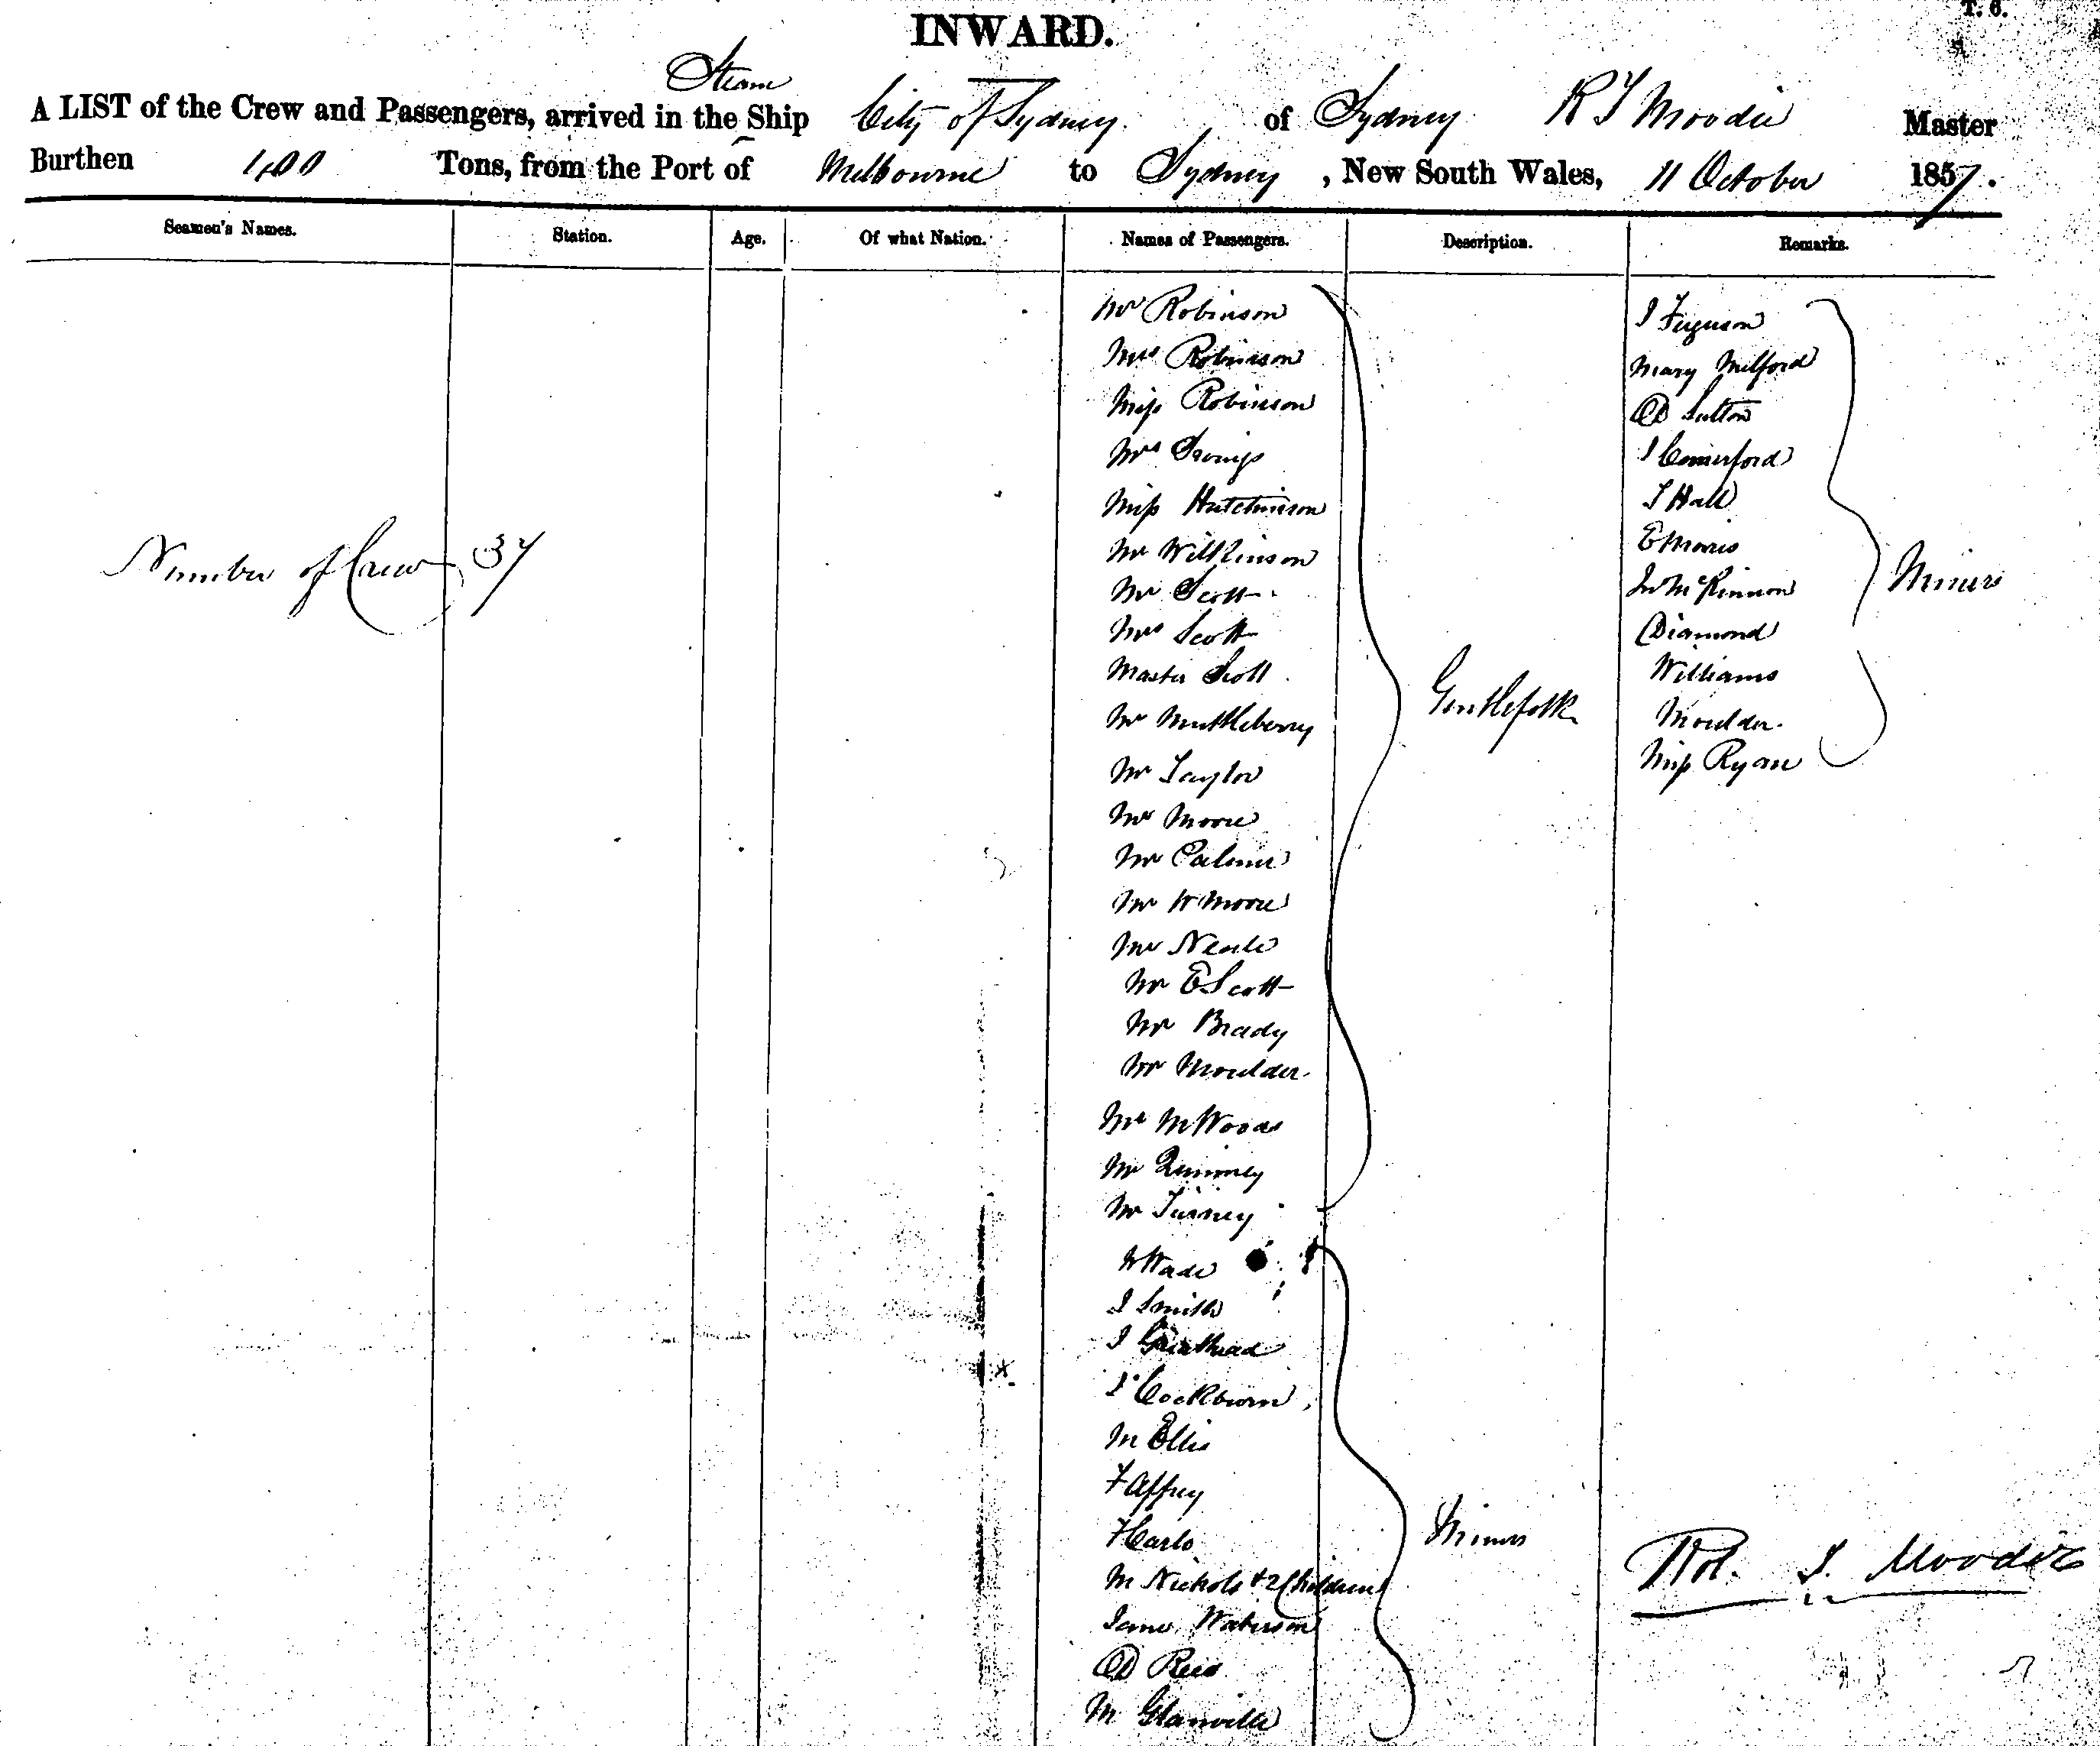 T. 6.
INWARD.
Steam
A LIST of the Crew and Passengers, arrived in the Ship City of Sydney of Sydney R T Moodie Master
Burthen Tons, from the Port of Melbourne to Sydney, New South Wales, 11 October 1857.
Seamen's Names. Station. Age. Of what Nation. Names of Passengers. Description. Remarks.
Number of Crew 37
Mr Robinson
Mrs Robinson
Miss Robinson
Mrs
Miss Hutchinson
Mr Wilkinson
Mr Scott
Mrs Scott
Master Scott
Mr Muttlebery
Mr Taylor
Mr Moore
Mr Palmer
Mr W Moore
Mr Neale
Mr E Scott
Mr Brady
Mr Moulder
Mr M Woods
Mr
Mr Tierney
Gentlefolk
W Wade
J Smith
J Greathead
J Cockburn
M Ellis
F Affrey
F Carlo
M Nichols & 2 Children
James Waterson
D Reid
M Glanville
Miners
J Ferguson
Mary Milford
D Sutton
J Comerford
T Hall
E Morris
Jn McKinnon
Diamond
Williams
Moulder
Miss Ryan
Miners
Rot. T. Moodie